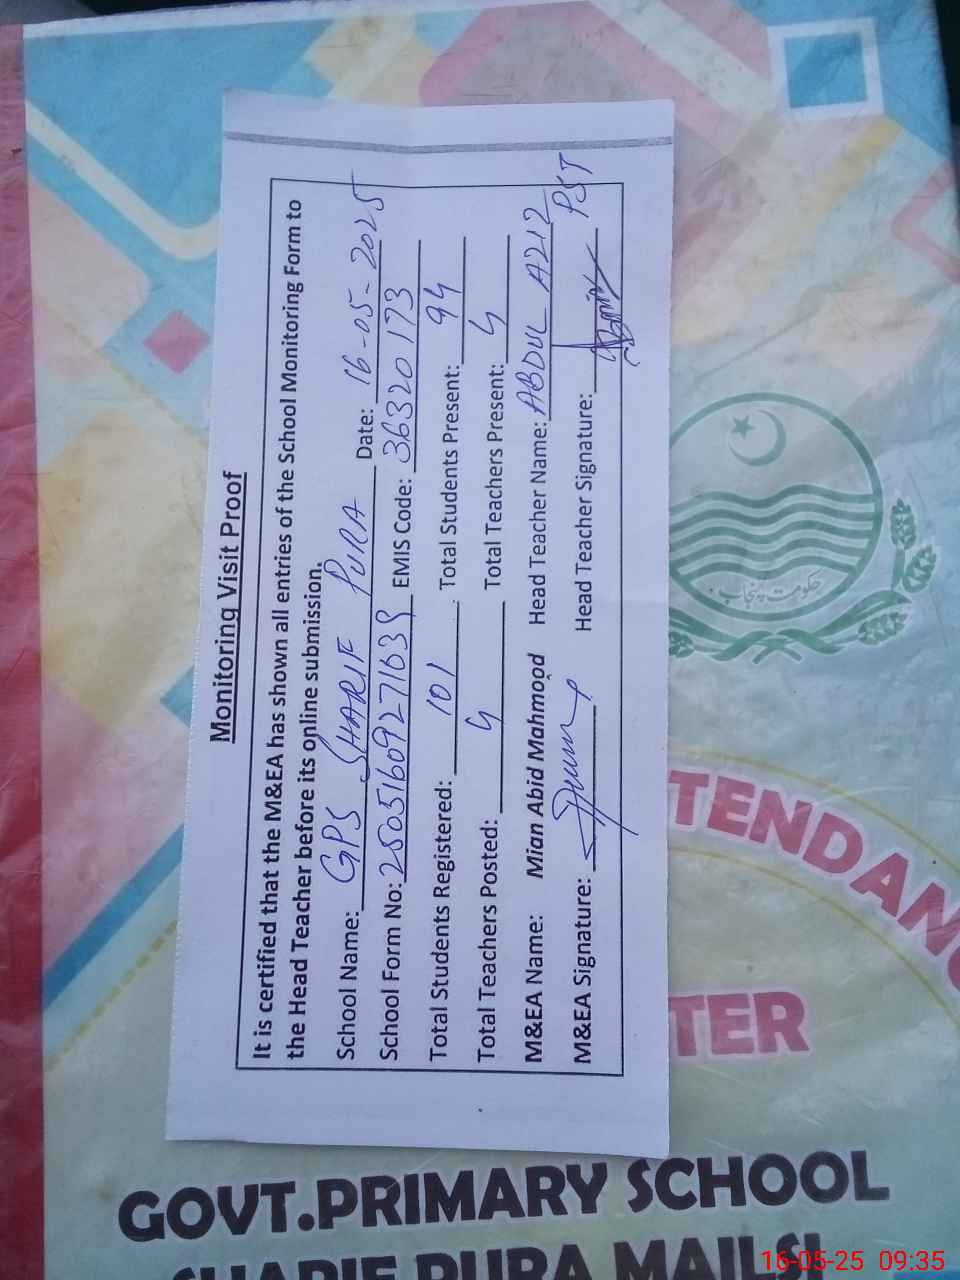 Monitoring Visit Proof
It is certified that the M&EA has shown all entries of the School Monitoring Form to
the Head Teacher before its online submission.
School Name: GPS SHARIF PURA Date: 16-05-2025
School Form No: 25051609271639 EMIS Code: 36320173
Total Students Registered: 101 Total Students Present: 94
Total Teachers Posted: 4 Total Teachers Present: 4
M&EA Name: Mian Abid Mahmood Head Teacher Name: ABDUL AZIZ PST
M&EA Signature: Head Teacher Signature:
حکومت پنجاب
TENDANC
TER
GOVT.PRIMARY SCHOOL
SHARIF PURA MAILSI
16-05-25 09:35